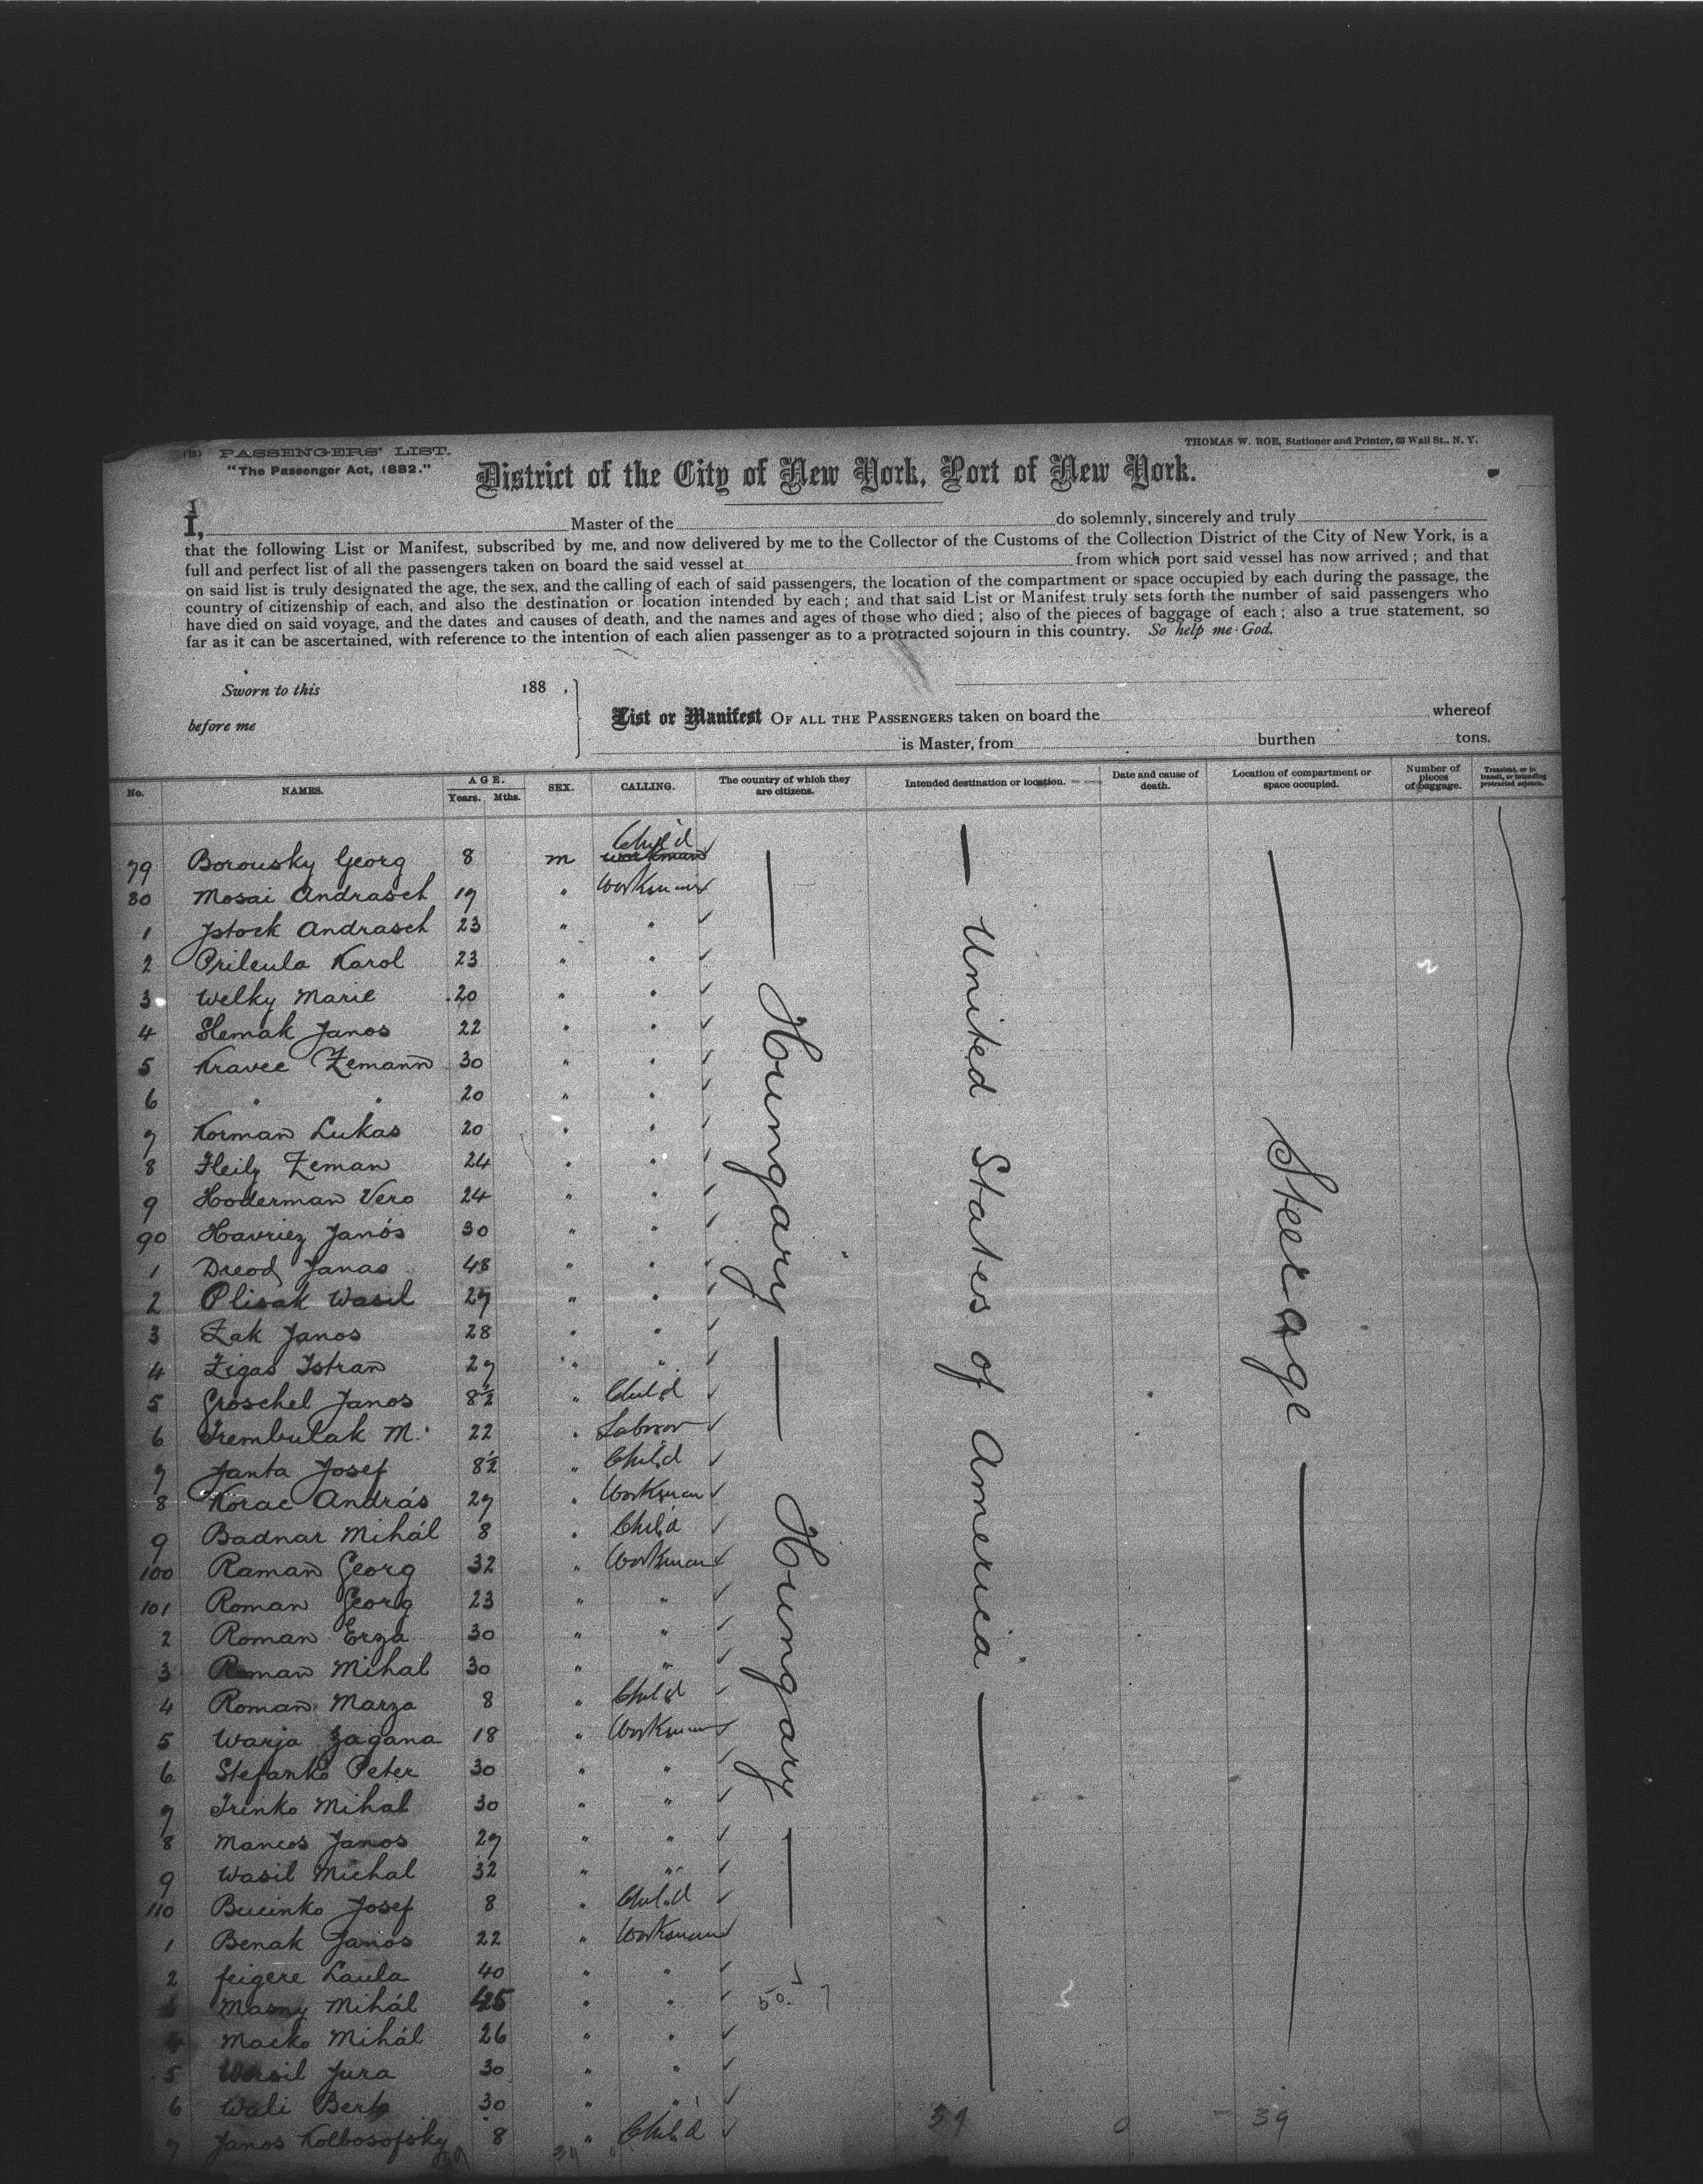 (18) PASSENGERS' LIST.
THOMAS W. ROE, Stationer and Printer, 63 Wall St., N. Y.
"The Passenger Act, 1882."
District of the City of New York, Port of New York.
I, Master of the do solemnly, sincerely and truly
that the following List or Manifest, subscribed by me, and now delivered by me to the Collector of the Customs of the Collection District of the City of New York, is a
full and perfect list of all the passengers taken on board the said vessel at from which port said vessel has now arrived; and that
on said list is truly designated the age, the sex, and the calling of each of said passengers, the location of the compartment or space occupied by each during the passage, the
country of citizenship of each, and also the destination or location intended by each; and that said List or Manifest truly sets forth the number of said passengers who
have died on said voyage, and the dates and causes of death, and the names and ages of those who died; also of the pieces of baggage of each; also a true statement, so
far as it can be ascertained, with reference to the intention of each alien passenger as to a protracted sojourn in this country. So help me God.
Sworn to this 188 ,
before me
List or Manifest OF ALL THE PASSENGERS taken on board the whereof
is Master, from burthen tons.
No. NAMES. AGE. Years. Mths. SEX. CALLING. The country of which they are citizens. Intended destination or location. Date and cause of death. Location of compartment or space occupied. Number of pieces of baggage. Transient, or in transit, or intending protracted sojourn.
Hungary Hungary
United States of America
Steerage
79 Borousky Georg 8 m workman Child
80 Mosai Andrasch 19 " Workman
1 Jstock Andrasch 23 " "
2 Prileula Karol 23 " "
3 Welky Marie 20 " "
4 Slemak Janos 22 " "
5 Kravec Zemann 30 " "
6 " " 20 " "
7 Korman Lukas 20 " "
8 Heily Zeman 24 " "
9 Hoderman Vero 24 " "
90 Havriez Janós 30 " "
1 Dreod Janas 48 " "
2 Plisak Wasil 27 " "
3 Zak Janos 28 " "
4 Zigas Istran 27 " "
5 Groschel Janos 8½ " Child
6 Trembulak M. 22 " Labour
7 Janta Josef 8½ " Child
8 Korac András 27 " Workman
9 Badnar Mihál 8 " Child
100 Raman Georg 32 " Workman
101 Roman Georg 23 " "
2 Roman Erza 30 " "
3 Roman Mihal 30 " "
4 Roman Marza 8 " Child
5 Warja Zagana 18 " Workman
6 Stefanko Peter 30 " "
7 Trinko Mihal 30 " "
8 Mancos Janos 27 " "
9 Wasil Michal 32 " "
110 Bucinko Josef 8 " Child
1 Benak Janos 22 " Workman
2 feigere Laula 40 " "
Masny Mihál 45 " "
4 Macko Mihál 26 " "
5 Wasil Jura 30 " "
6 Wali Berta 30 " "
7 Janos Kolbosofsky 8 " Child
39 0 39